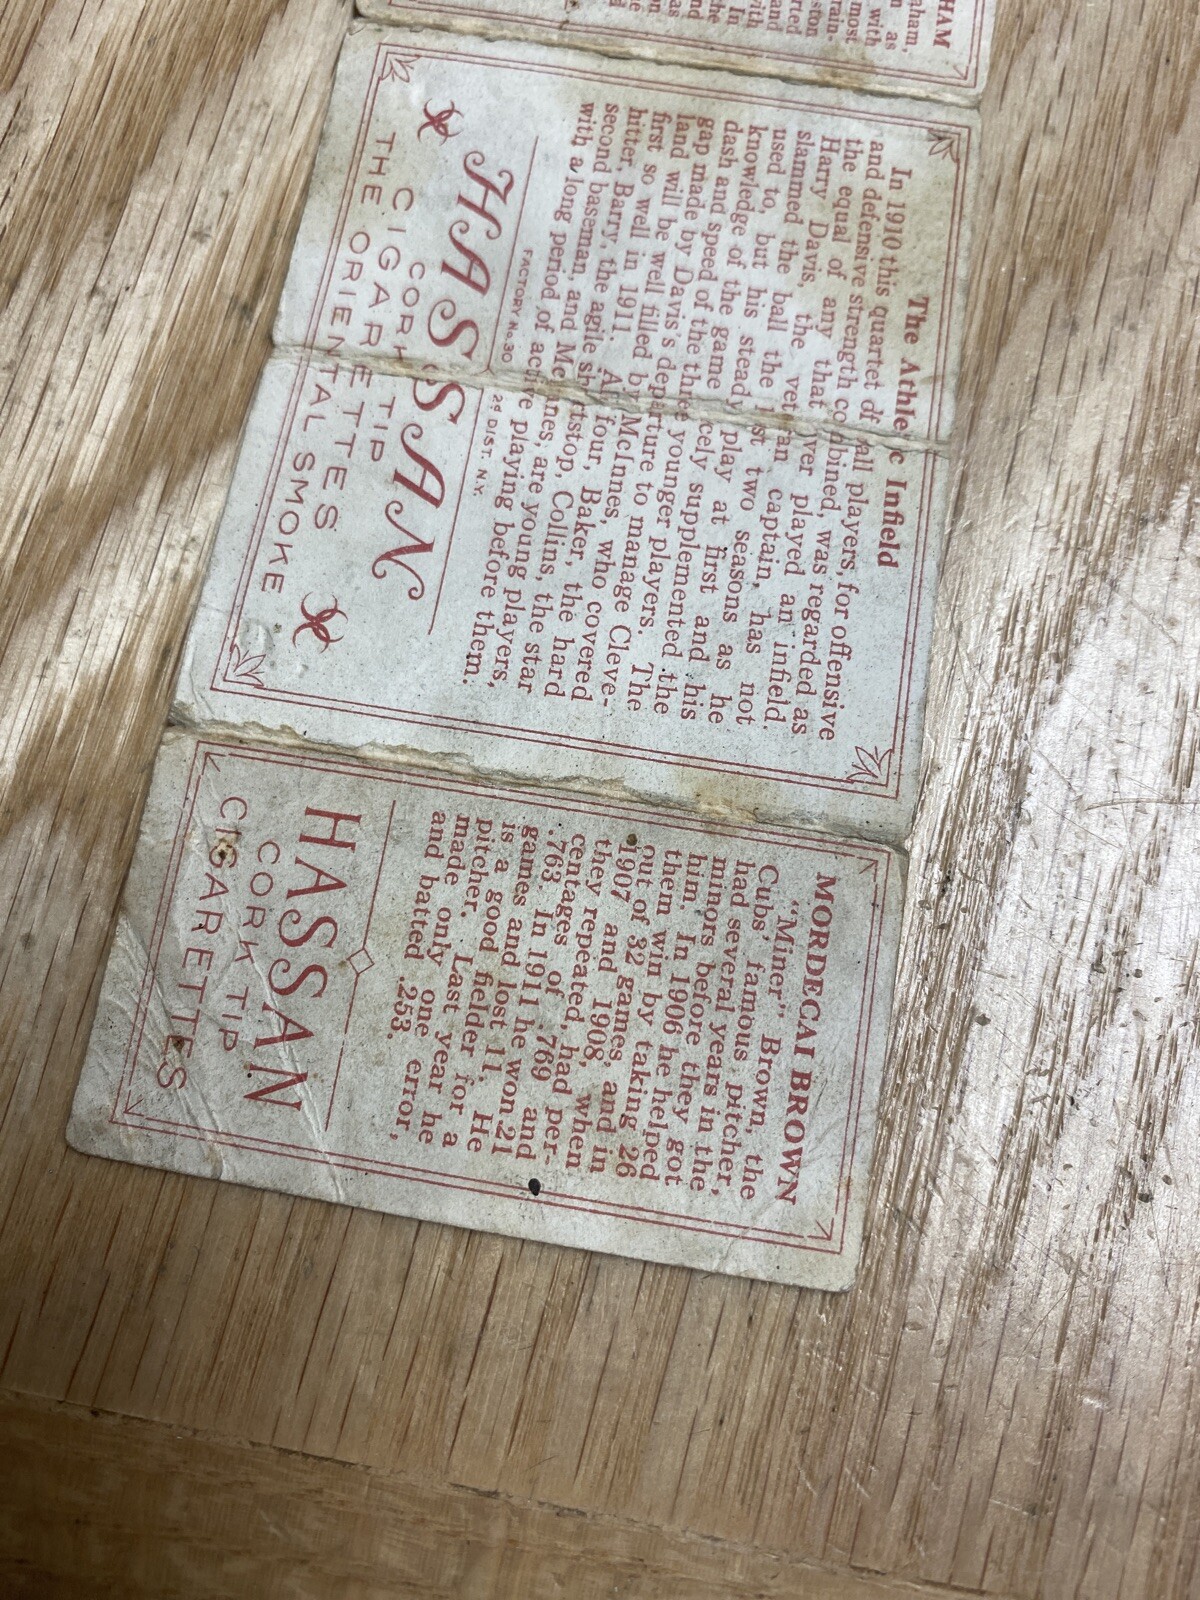 HAM
The Athletic Infield
In 1910 this quartet of ball players, for offensive
and defensive strength combined, was regarded as
the equal of any that ever played an infield.
Harry Davis, the veteran captain, has not
slammed the ball the last two seasons as he
used to, but his steady play at first and his
knowledge of the game nicely supplemented the
dash and speed of the three younger players. The
gap made by Davis's departure to manage Cleve-
land will be well filled by McInnes, who covered
first so well in 1911. All four, Baker, the hard
hitter, Barry, the agile shortstop, Collins, the star
second baseman, and McInnes, are young players,
with a long period of active playing before them.
FACTORY No. 30 2d DIST. N.Y.
HASSAN
CORK TIP
CIGARETTES
THE ORIENTAL SMOKE
MORDECAI BROWN
"Miner" Brown, the
Cubs' famous pitcher,
had several years in the
minors before they got
him. In 1906 he helped
them win by taking 26
out of 32 games, and in
1907 and 1908, when
they repeated, had per-
centages of .769 and
.763. In 1911 he won 21
games and lost 11. He
is a good fielder for a
pitcher. Last year he
made only one error,
and batted .253.
HASSAN
CORK TIP
CIGARETTES